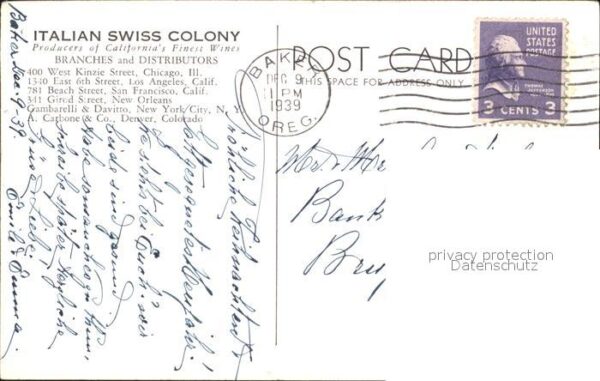 ITALIAN SWISS COLONY
Producers of California's Finest Wines
BRANCHES and DISTRIBUTORS
400 West Kinzie Street, Chicago, Ill.
1340 East 6th Street, Los Angeles, Calif.
781 Beach Street, San Francisco, Calif.
341 Girod Street, New Orleans
Gambarelli & Davitto, New York City, N. Y.
A. Carbone & Co., Denver, Colorado
POST CARD
THIS SPACE FOR ADDRESS ONLY
BAKER
DEC 9
11 PM
1939
OREG.
UNITED
STATES
POSTAGE
THOMAS
JEFFERSON
3 CENTS 3
Baker Dec - 9 - 39.
Fröhliche Weihnachten &
gesegnetes Neujahr!
bei Euch? wir
beide sind gesund
später. Herzliche
Grüße
Emil & Emma.
Mr. & Mr
Bank
privacy protection
Datenschutz